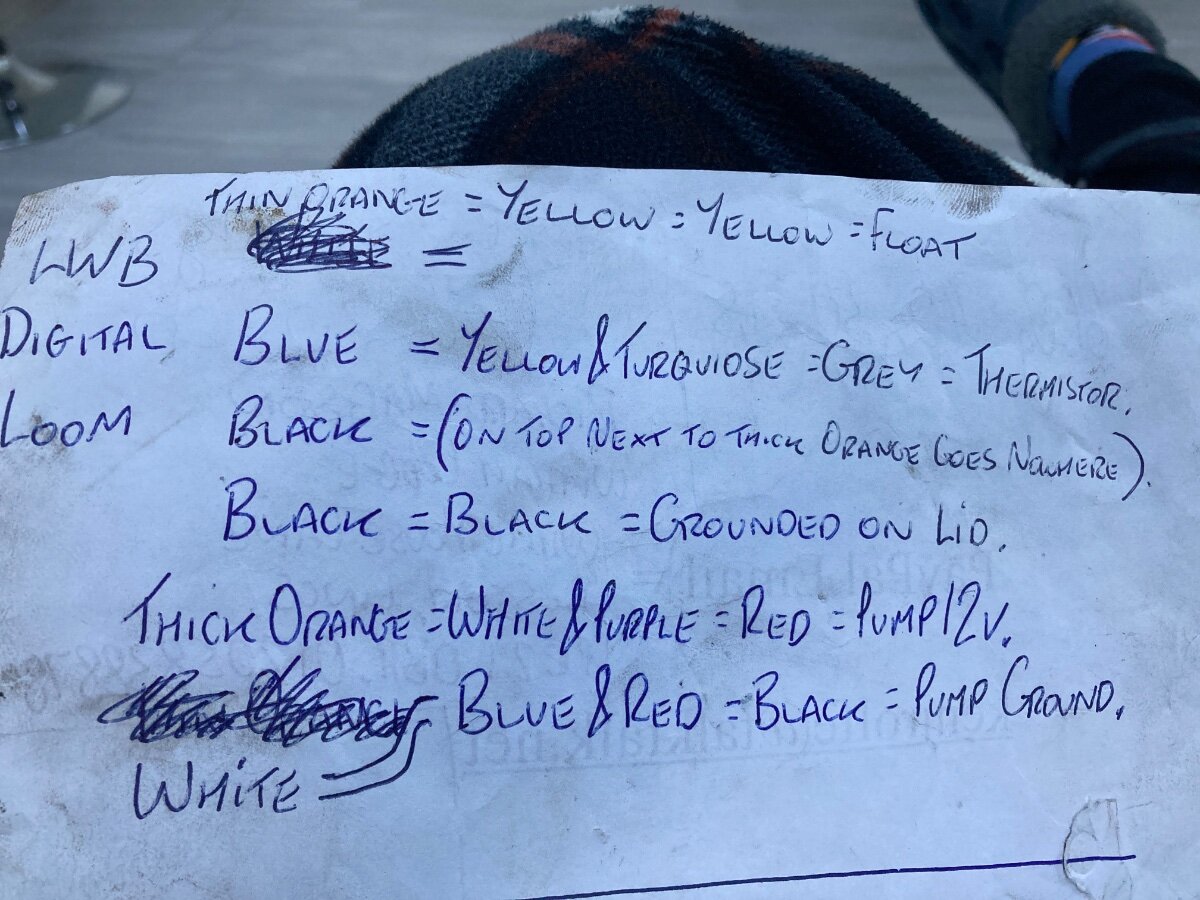 THIN ORANGE = YELLOW = YELLOW = FLOAT
LWB =
DIGITAL BLUE = YELLOW & TURQUIOSE = GREY = THERMISTOR.
LOOM BLACK = (ON TOP NEXT TO THICK ORANGE GOES NOWHERE).
BLACK = BLACK = GROUNDED ON LID.
THICK ORANGE = WHITE & PURPLE = RED = PUMP 12V.
BLUE & RED = BLACK = PUMP GROUND.
WHITE